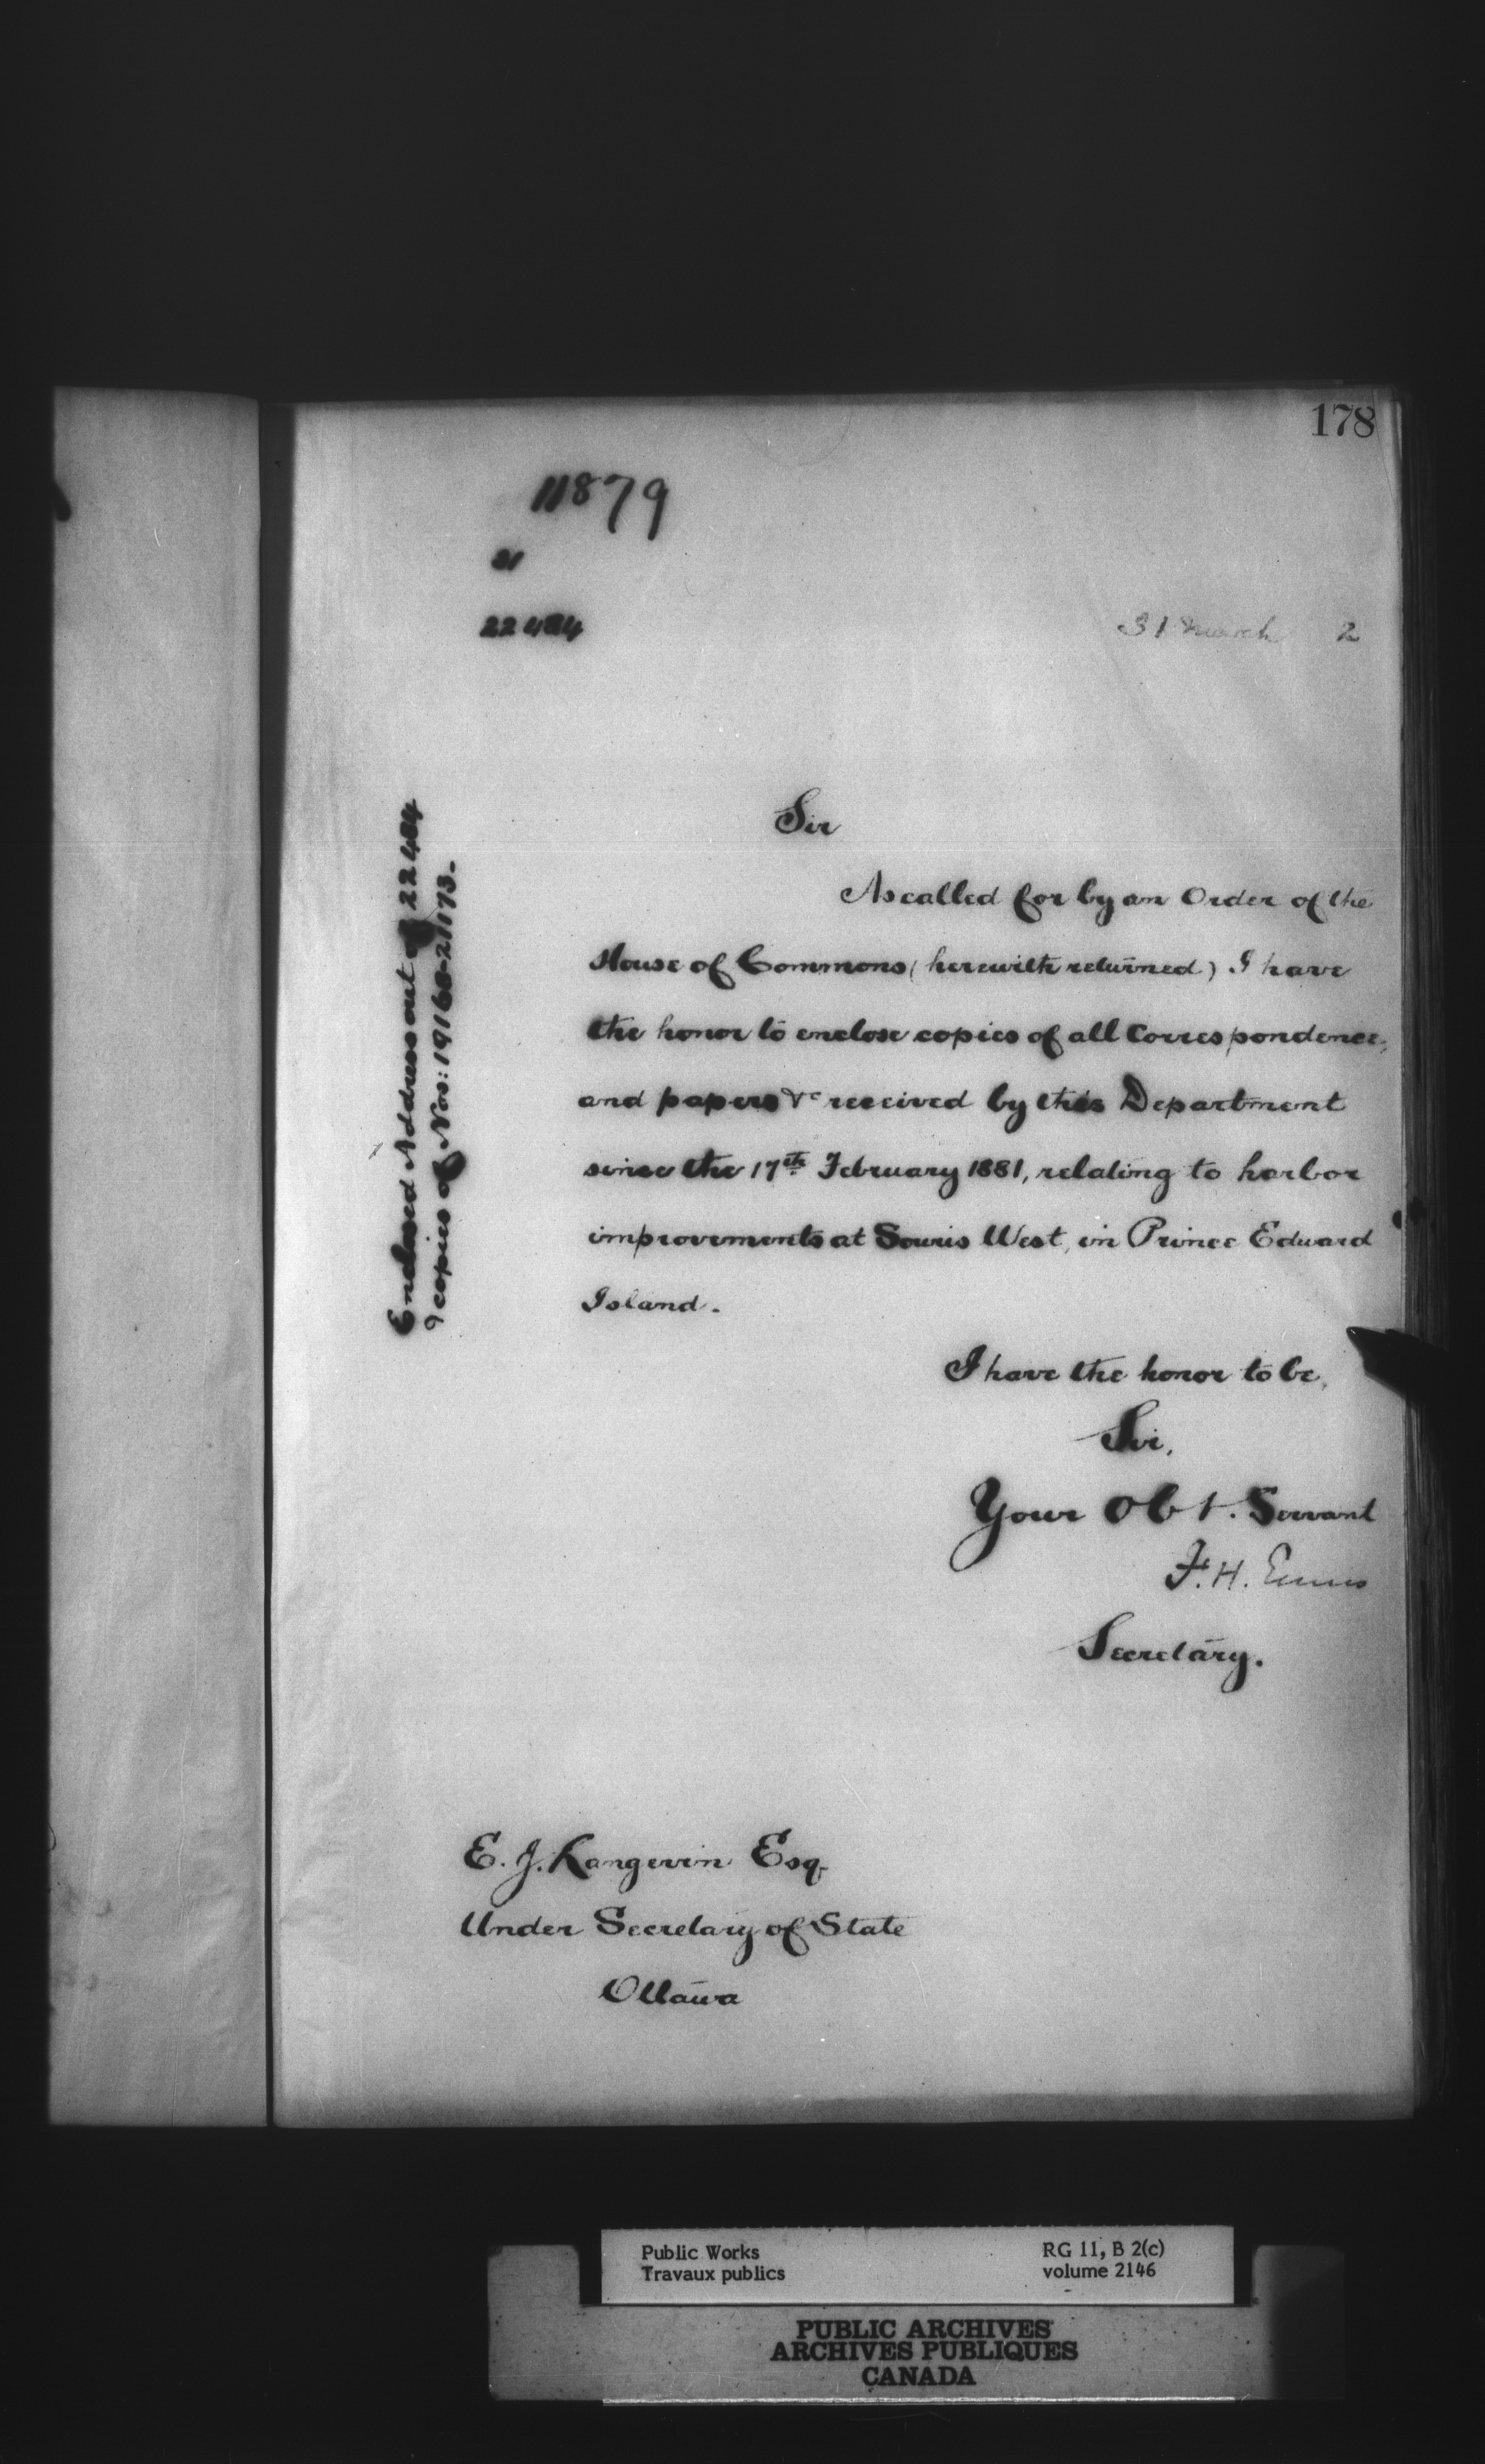 178
11879
31
22484
31 March 2
Enclosed Address out of 22484
9 copies of Nos: 19168-21173.
Sir
As called for by an Order of the
House of Commons (herewith returned) I have
the honor to enclose copies of all correspondence,
and papers &c received by this Department
since the 17th February 1881, relating to harbor
improvements at Souris West, in Prince Edward
Island.
I have the honor to be,
Sir,
Your Obt. Servant
F. H. Ennis
Secretary.
E. J. Langevin Esq.
Under Secretary of State
Ottawa
Public Works
Travaux publics
RG 11, B 2(c)
volume 2146
PUBLIC ARCHIVES
ARCHIVES PUBLIQUES
CANADA